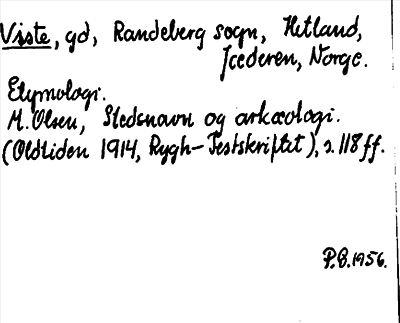 Viste, gd, Randeberg sogn, Hetland,
Jæderen, Norge.
Etymologi.
M. Olsen, Stedsnavn og arkæologi.
(Oldtiden 1914, Rygh-Festskriftet), s. 118 ff.
P.G. 1956.